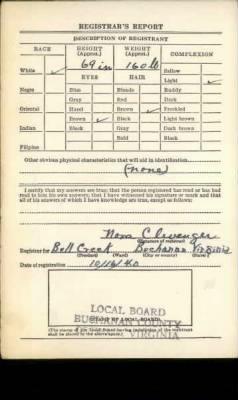 REGISTRAR'S REPORT
DESCRIPTION OF REGISTRANT
RACE HEIGHT (Approx.) WEIGHT (Approx.) COMPLEXION
69 in 160 lb
White ✓ EYES HAIR Sallow
Light ✓
Negro Blue Blonde Ruddy
Gray Red Dark
Oriental Hazel Brown ✓ Freckled
Brown ✓ Black Light brown
Indian Black Gray Dark brown
Bald Black
Filipino
Other obvious physical characteristics that will aid in identification
(none)
I certify that my answers are true; that the person registered has read or has had
read to him his own answers; that I have witnessed his signature or mark and that
all of his answers of which I have knowledge are true, except as follows:
Nora Clevenger
(Signature of registrar)
Registrar for Bell Creek Buchanan Virginia
(Precinct) (Ward) (City or county) (State)
Date of registration 10/16/40
LOCAL BOARD
BUCHANAN COUNTY
VIRGINIA
(STAMP OF LOCAL BOARD)
(The stamp of the Local Board having jurisdiction of the registrant
shall be placed in the above space.)